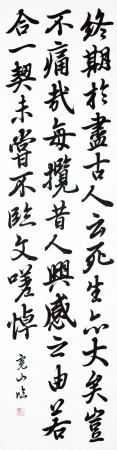 終期於盡古人云死生亦大矣豈
不痛哉每攬昔人興感之由若
合一契未嘗不臨文嗟悼
堯山臨